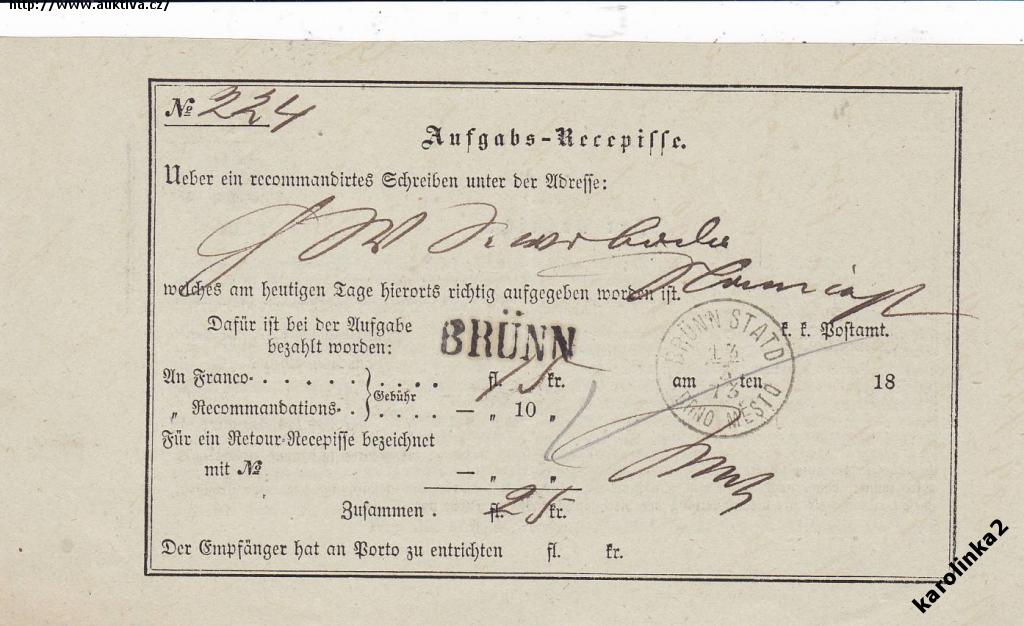 http://www.auktiva.cz/
No 224
Aufgabs-Recepisse.
Ueber ein recommandirtes Schreiben unter der Adresse:
welches am heutigen Tage hierorts richtig aufgegeben worden ist.
Dafür ist bei der Aufgabe bezahlt worden:
BRÜNN
BRÜNN STATD
13
3
73
BRNO MĚSTO
k. k. Postamt.
am ten 18
An Franco . . . . . . } . . . . fl. 15 kr.
„ Recommandations . . } Gebühr . . . . — „ 10 „
Für ein Retour-Recepisse bezeichnet
mit No — „ „
Zusammen . fl. 25 kr.
Der Empfänger hat an Porto zu entrichten fl. kr.
karolinka2